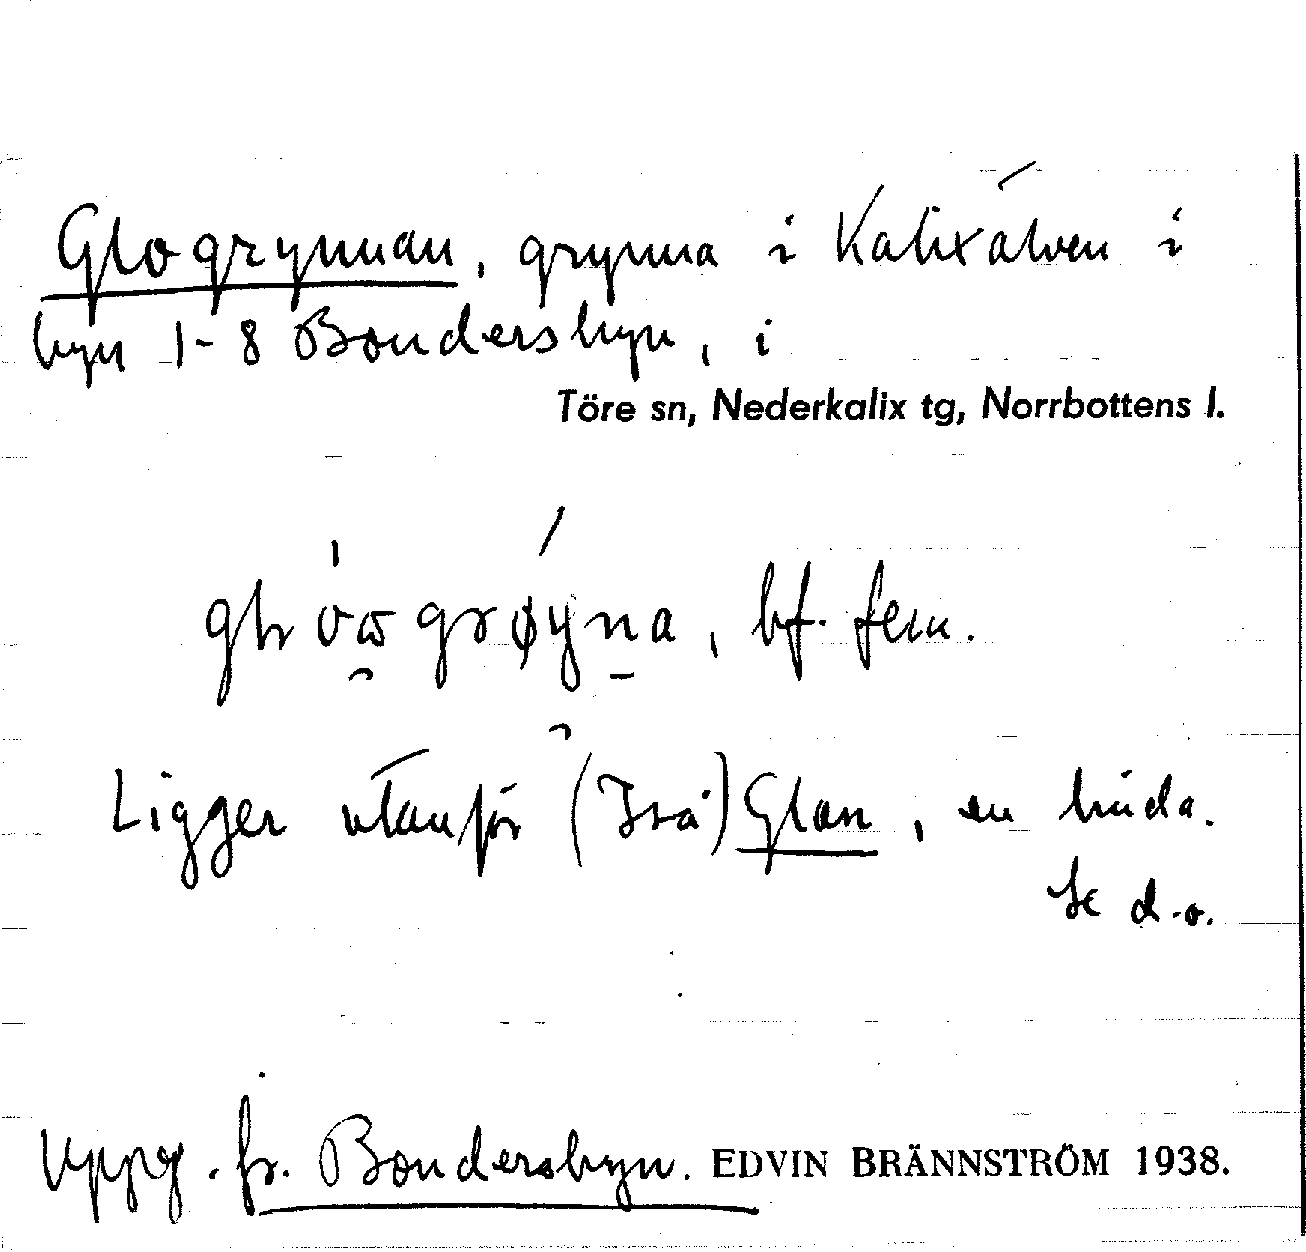 Glogrynnan, grynna i Kalixälven i
byn 1-8 Bondersbyn, i
Töre sn, Nederkalix tg, Norrbottens l.
bf. fem.
Ligger utanför (Isa) Glan, en linda.
Se d.o.
Uppg. fr. Bondersbyn. EDVIN BRÄNNSTRÖM 1938.